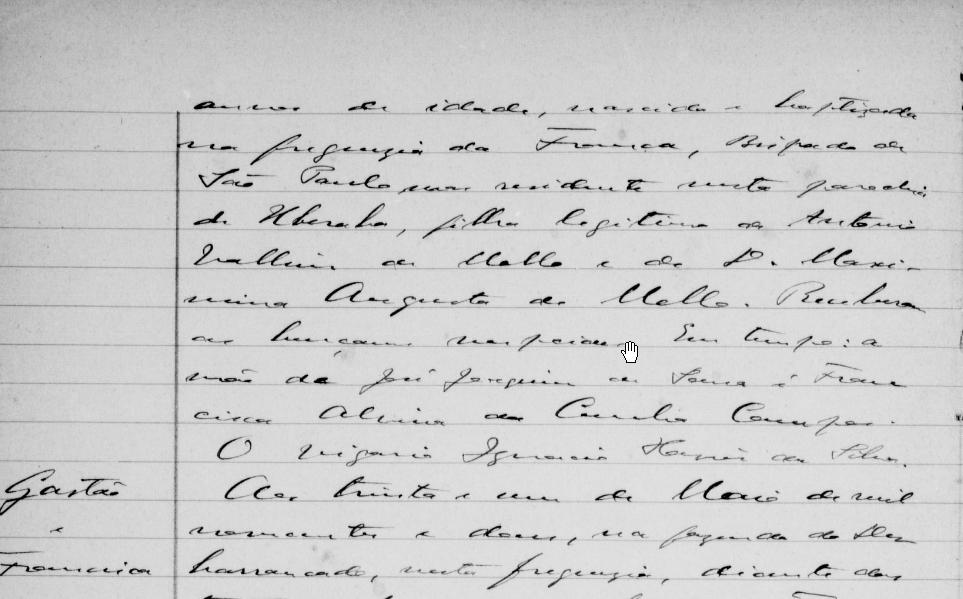 annos de idade, nascida e baptizada
na freguezia da Franca, Bispado de
São Paulo, mas residente nesta parochia
de Uberaba, filha legitima de Antonio
de Mello e de D. Maxi-
mina Augusta de Mello. Receberam
as bençams nupciaes. Em tempo: a
mãe de José Joaquim de Souza é Fran
cisca Alvina da Cunha Campos.
O vigario Ignacio da Silva.
Gastão
e
Francisca
Aos trinta e um de Maio de mil
novecentos e dous, na fazenda do Des
barrancado, nesta freguezia, diante das